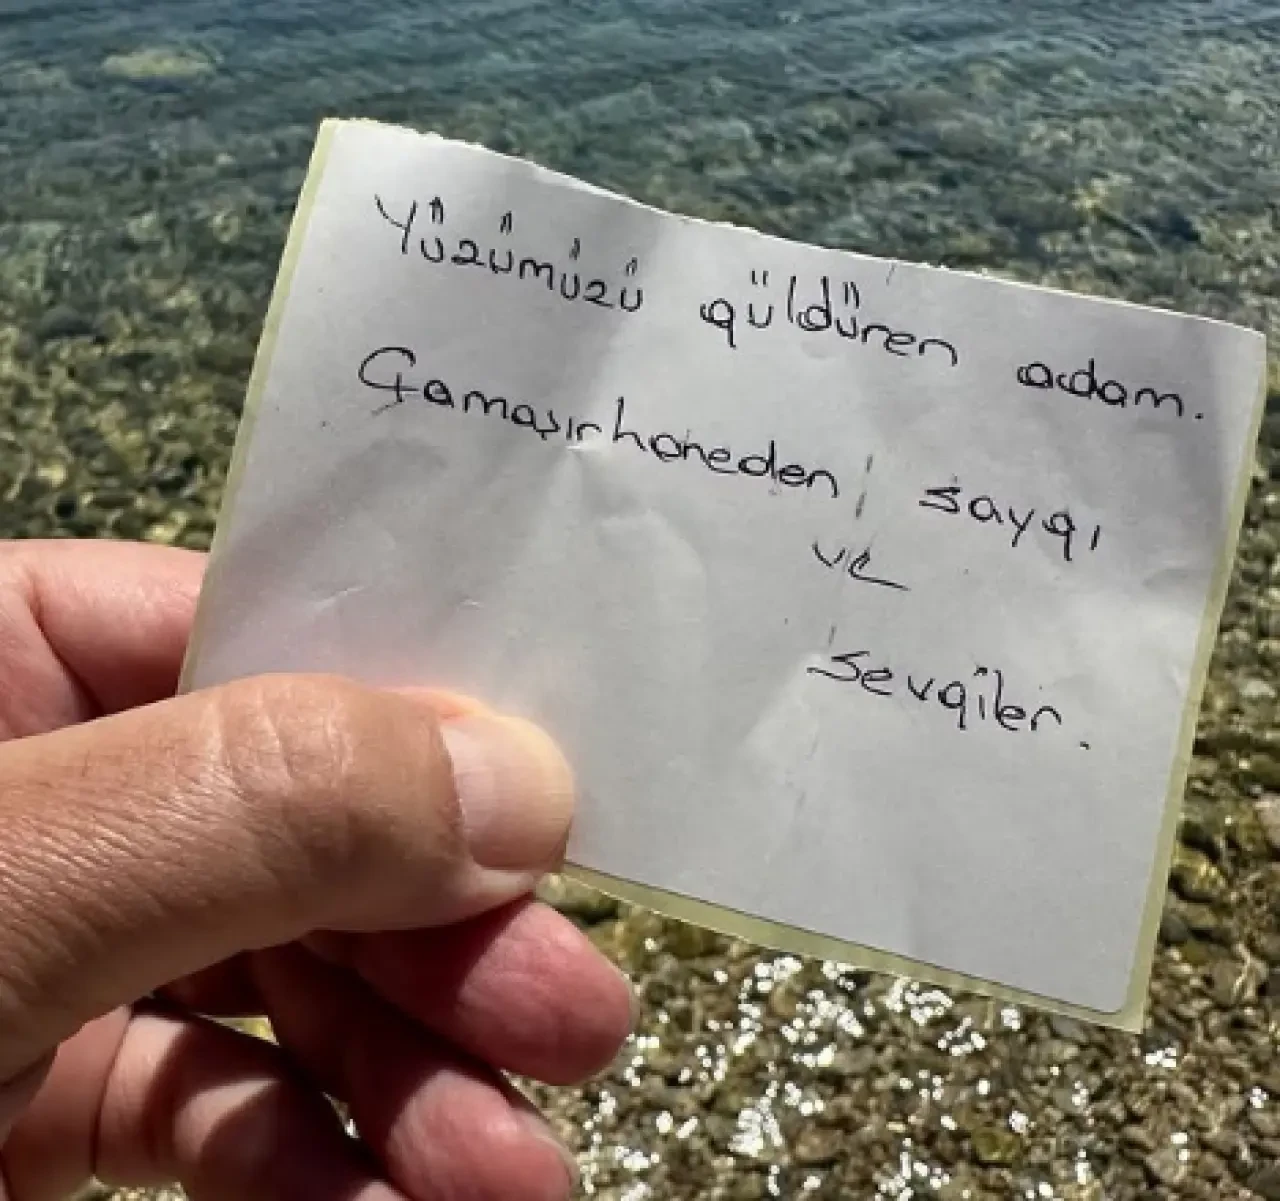 Yüzümüzü güldüren adam.
Çamaşırhaneden saygı
ve
sevgiler.